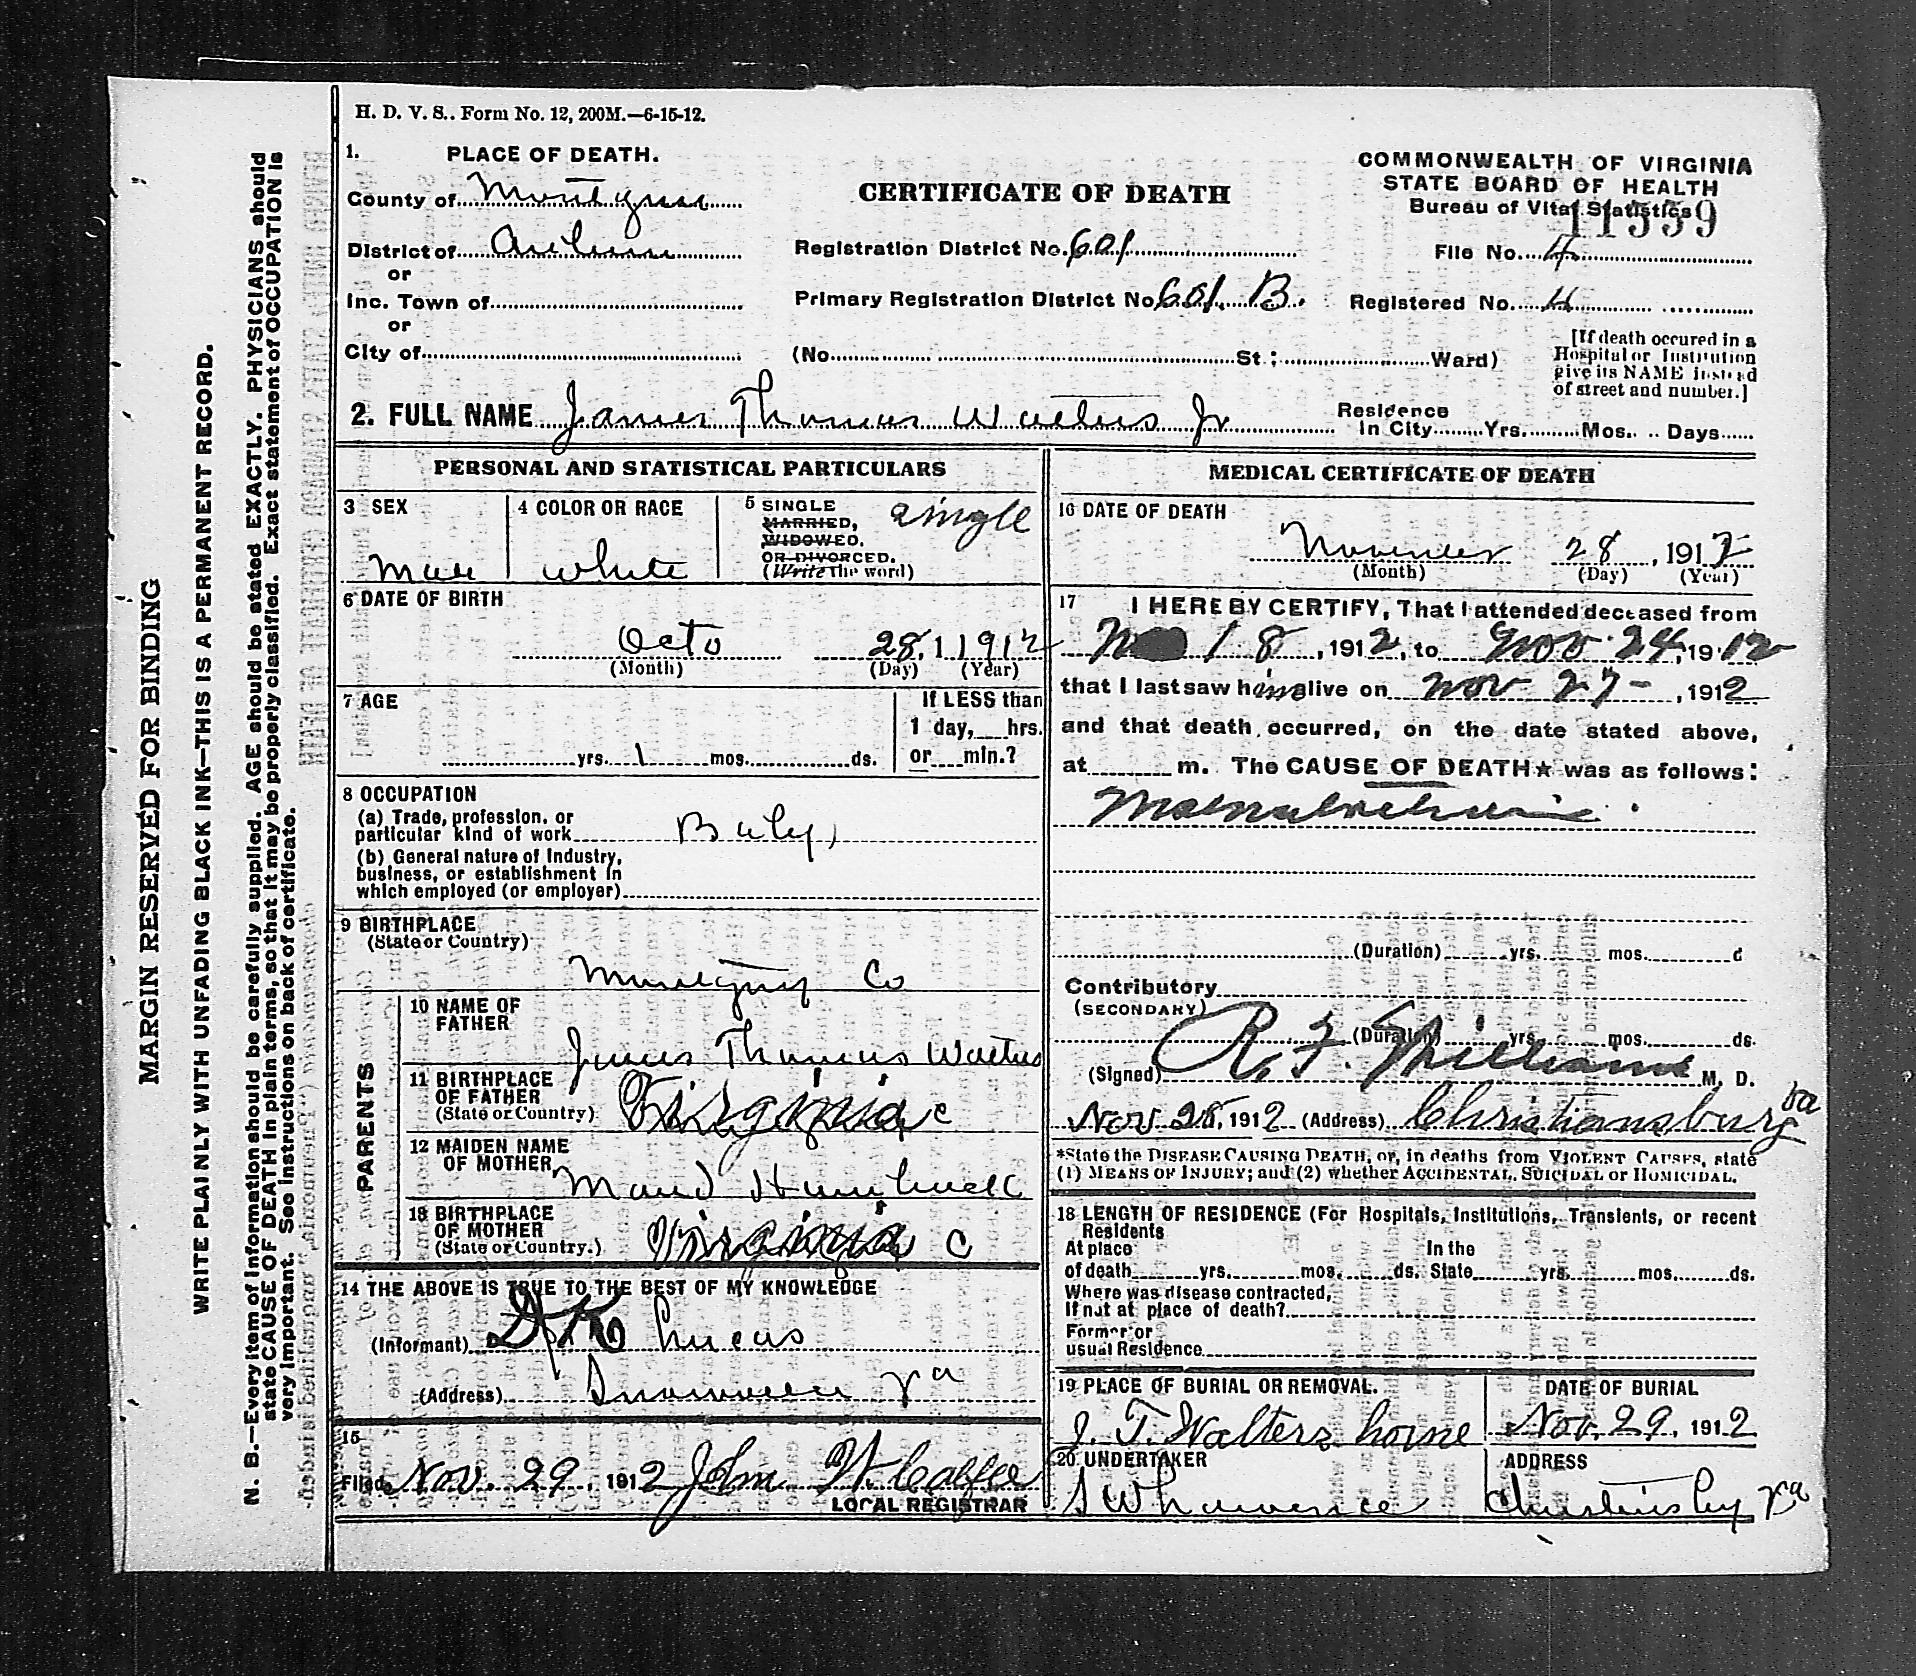 H. D. V. S.. Form No. 12, 200M.—6-15-12.
1. PLACE OF DEATH.
County of
District of
or
Inc. Town of
or
City of
CERTIFICATE OF DEATH
Registration District No. 601
Primary Registration District No. 601 B.
(No. St; Ward)
COMMONWEALTH OF VIRGINIA
STATE BOARD OF HEALTH
Bureau of Vital Statistics
11559
File No. 4
Registered No. 4
[If death occured in a
Hospital or Institution
give its NAME instead
of street and number.]
2. FULL NAME James Thomas Walters Jr
Residence
In City Yrs. Mos. Days
PERSONAL AND STATISTICAL PARTICULARS
3 SEX
Male
4 COLOR OR RACE
white
5 SINGLE
MARRIED,
WIDOWED.
OR DIVORCED.
(Write the word)
single
6 DATE OF BIRTH
Octo 28, 1 1912
(Month) (Day) (Year)
7 AGE
yrs. 1 mos. ds.
If LESS than
1 day, hrs.
or min.?
8 OCCUPATION
(a) Trade, profession, or
particular kind of work Baby
(b) General nature of Industry,
business, or establishment in
which employed (or employer)
9 BIRTHPLACE
(State or Country)
Co
PARENTS
10 NAME OF
FATHER
James Thomas Walters
11 BIRTHPLACE
OF FATHER
(State or Country)
Virginia c
12 MAIDEN NAME
OF MOTHER
Maud
13 BIRTHPLACE
OF MOTHER
(State or Country.)
Virginia c
14 THE ABOVE IS TRUE TO THE BEST OF MY KNOWLEDGE
(Informant) Lucas
(Address) Va
15
Filed Nov. 29, 1912 John W Calfee
LOCAL REGISTRAR
MEDICAL CERTIFICATE OF DEATH
16 DATE OF DEATH
November 28, 1912
(Month) (Day) (Year)
17 I HEREBY CERTIFY, That I attended deceased from
18, 1912, to Nov. 24, 1912
that I last saw him alive on Nov 27-, 1912
and that death occurred, on the date stated above,
at m. The CAUSE OF DEATH★ was as follows:
(Duration) yrs. mos. d
Contributory
(SECONDARY)
(Duration) yrs. mos. ds.
(Signed) R. F. M. D.
Nov. 28, 1912 (Address) Christiansburg Va
*State the DISEASE CAUSING DEATH, or, in deaths from VIOLENT CAUSES, state
(1) MEANS OF INJURY; and (2) whether ACCIDENTAL, SUICIDAL or HOMICIDAL.
18 LENGTH OF RESIDENCE (For Hospitals, Institutions, Transients, or recent
Residents
At place In the
of death yrs. mos. ds. State yrs. mos. ds.
Where was disease contracted,
If not at place of death?
Former or
usual Residence
19 PLACE OF BURIAL OR REMOVAL.
J. T. Walters home
DATE OF BURIAL
Nov. 29, 1912
20 UNDERTAKER
ADDRESS
Va
MARGIN RESERVED FOR BINDING
WRITE PLAINLY WITH UNFADING BLACK INK—THIS IS A PERMANENT RECORD.
N. B.—Every item of information should be carefully supplied. AGE should be stated EXACTLY. PHYSICIANS should
state CAUSE OF DEATH in plain terms, so that it may be properly classified. Exact statement of OCCUPATION is
very important. See instructions on back of certificate.